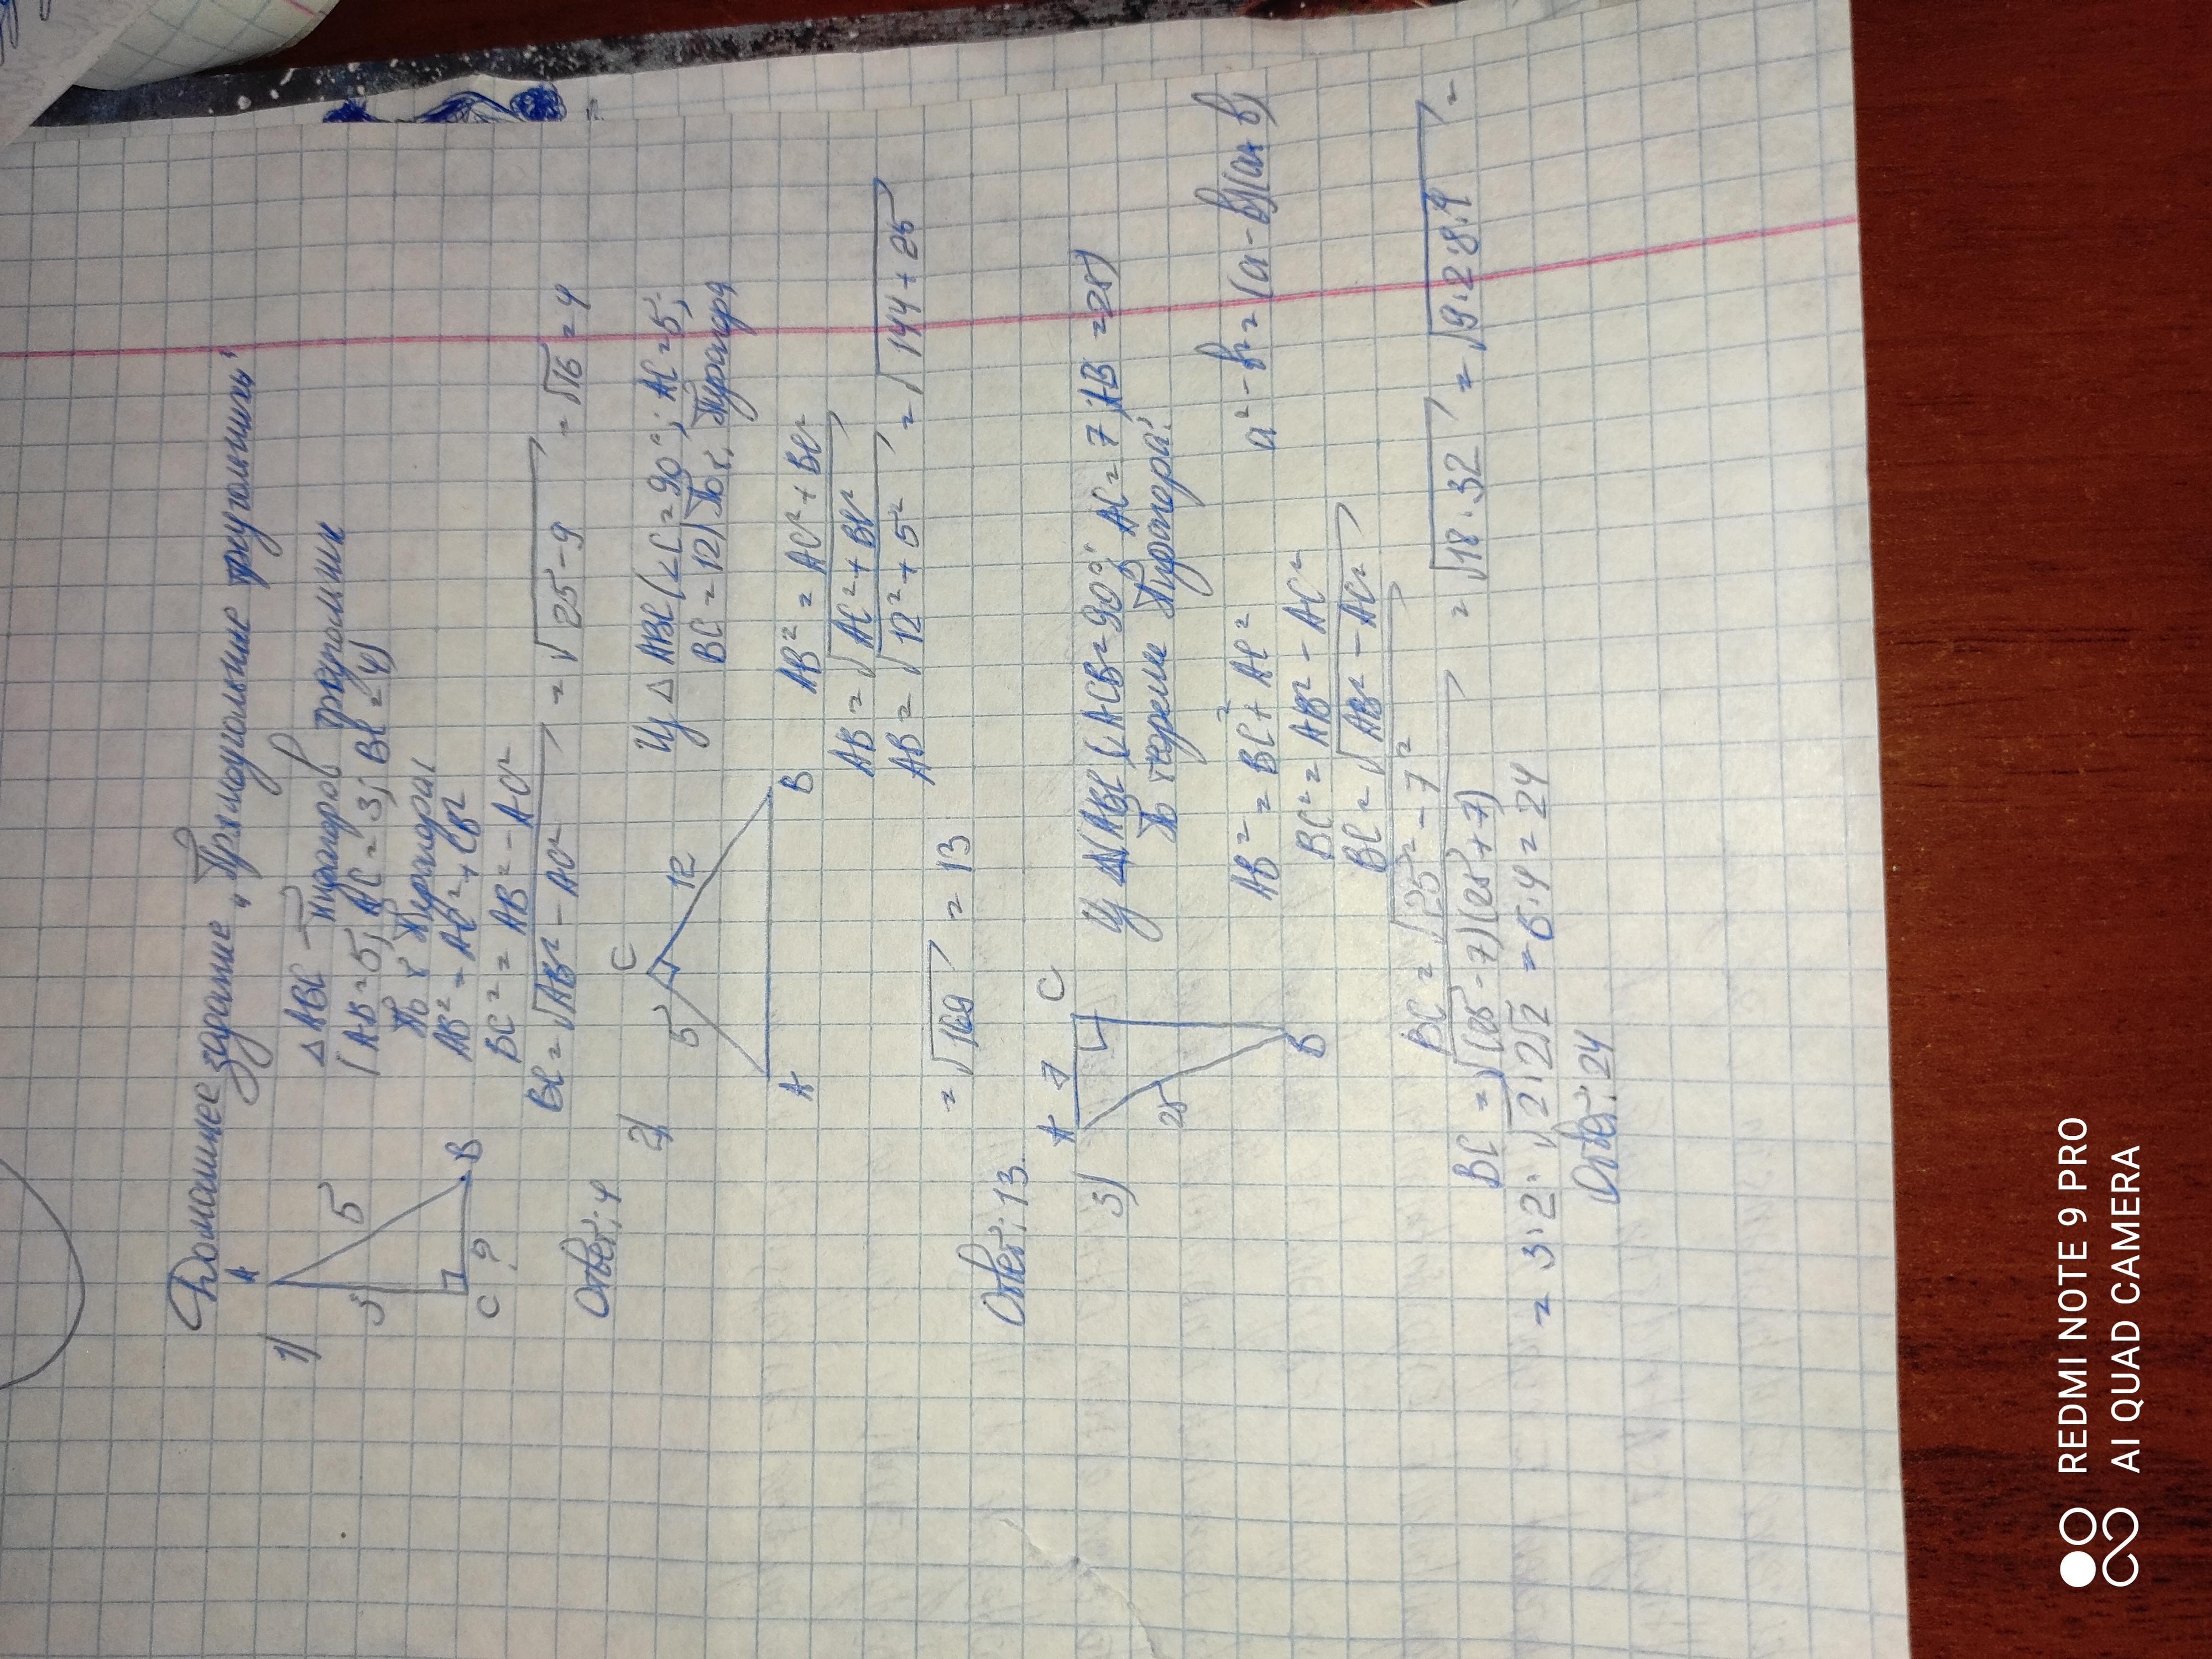 Домашнее задание „Прямоугольные треугольники"
1)
A
3
5
C
?
B
Δ ABC — Пифагоров треугольник
(AB = 5; AC = 3; BC = 4)
По т. Пифагора:
AB² = AC² + CB²
BC² = AB² - AC²
BC = √AB² - AC² = √25 - 9 = √16 = 4
Ответ: 4
2)
5
C
12
A
B
Из Δ ABC (∠C = 90°; AC = 5;
BC = 12) По т. Пифагора
AB² = AC² + BC²
AB = √AC² + BC²
AB = √12² + 5² = √144 + 25
= √169 = 13
Ответ: 13
3)
A
7
C
25
B
Из Δ ABC (∠ACB = 90°; AC = 7; AB = 25)
По теореме Пифагора:
AB² = BC² + AC²
a² - b² = (a - b)(a + b)
BC² = AB² - AC²
BC = √AB² - AC²
BC = √25² - 7²
BC = √(25 - 7)(25 + 7) = √18 · 32 = √9 · 2 · 8 · 4 =
= 3 · 2 · √2 · 2√2 = 6 · 4 = 24
Ответ: 24
REDMI NOTE 9 PRO
AI QUAD CAMERA